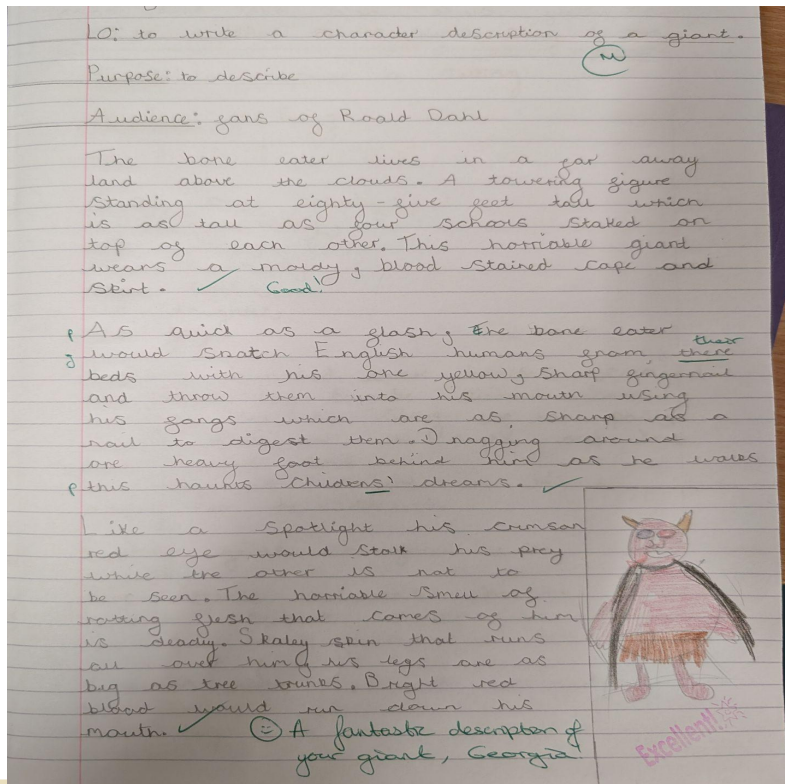 LO: to write a character description of a giant.
M
Purpose: to describe
Audience: fans of Roald Dahl
The bone eater lives in a far away
land above the clouds. A towering figure
standing at eighty-five feet tall which
is as tall as four schools staked on
top of each other. This horriable giard
wears a moldy, blood stained cape and
skirt. ✓ Good!
p As quick as a flash, the bone eater their
g would snatch English humans from there
beds with his one yellow, sharp fingernail
and throw them into his mouth using
his fangs which are as sharp as a
nail to digest them. Dragging around
one heavy foot behind him as he walks
p this haunts childrens' dreams. ✓
Like a spotlight his crimson
red eye would stalk his prey
while the other is not to
be seen. The horriable smell of
rotting flesh that comes of him
is deadly. Skaley skin that runs
all over him, his legs are as
big as tree trunks. Bright red
blood would run down his
mouth. ✓ A fantastic description of
your giant, Georgia.
Excellent!